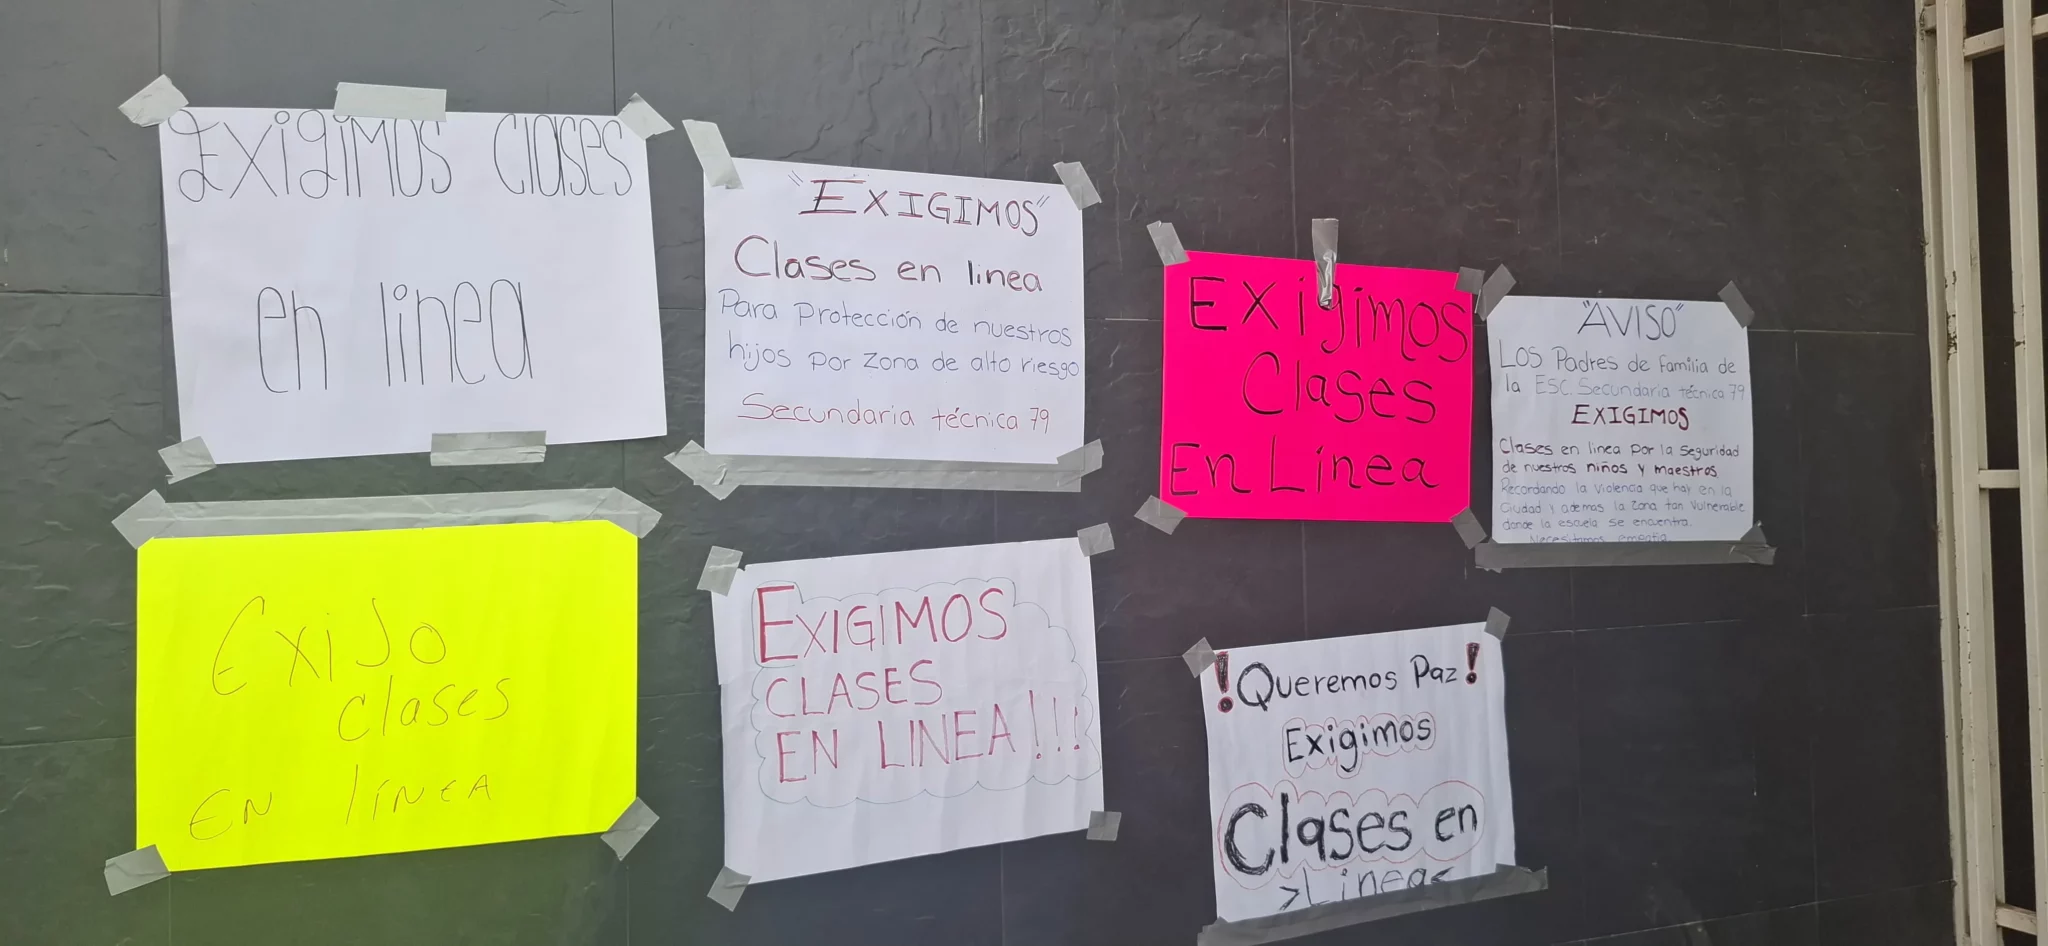 Exigimos clases
en linea
"EXIGIMOS"
Clases en linea
Para Protección de nuestros
hijos por zona de alto riesgo
Secundaria técnica 79
Exigimos
Clases
En Línea
"AVISO"
LOS Padres de familia de
la ESC. Secundaria técnica 79
EXIGIMOS
Clases en linea por la seguridad
de nuestros niños y maestros
Recordando la violencia que hay en la
Ciudad y ademas la zona tan vulnerable
donde la escuela se encuentra.
Necesitamos empatia
Exijo
clases
EN linEA
EXIGIMOS
CLASES
EN LINEA!!!
!Queremos Paz!
Exigimos
Clases en
>Linea<